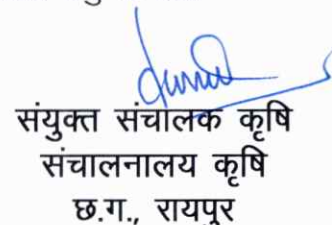 संयुक्त संचालक कृषि
संचालनालय कृषि
छ.ग., रायपुर